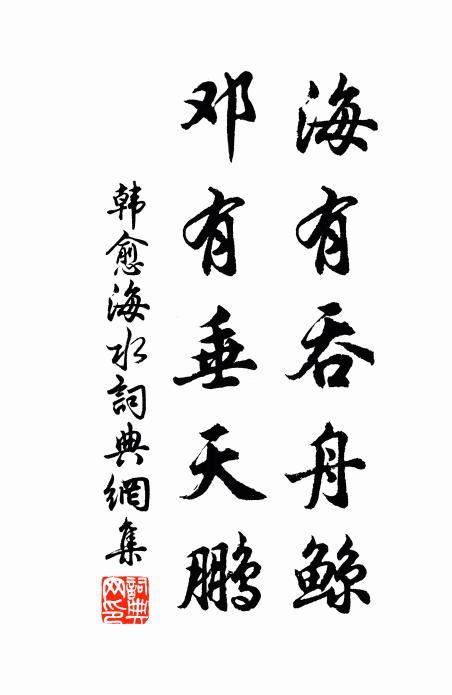 海有吞舟鲸
邓有垂天鹏
韩愈海水詞典網集
詞典网印